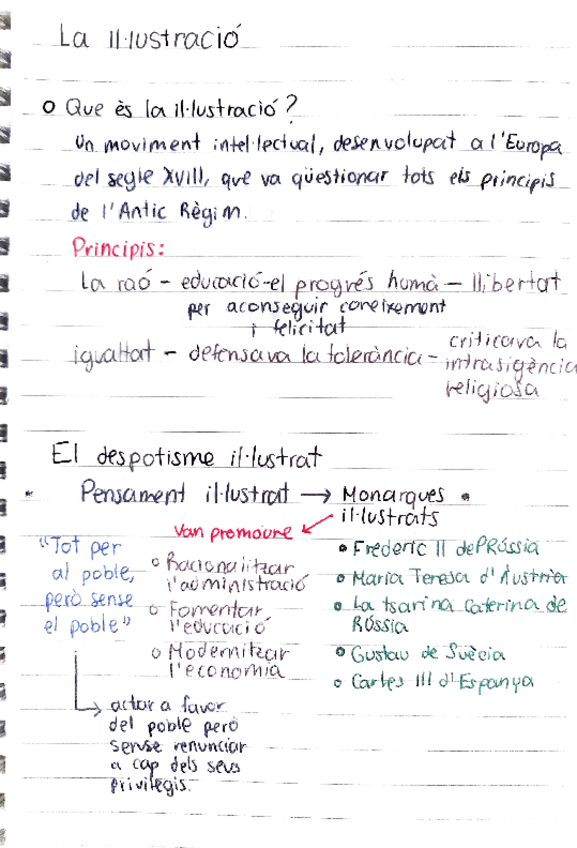 La Il·lustració
Que ès la il·lustració?
Un moviment intel·lectual, desenvolupat a l'Europa
del segle XVIII, que va qüestionar tots els principis
de l'Antic Règim.
Principis:
La raó - educació - el progrés humà - llibertat
per aconseguir coneixement
i felicitat
igualtat - defensava la tolerància - criticava la
intrasigència
religiosa
El despotisme il·lustrat
Pensament il·lustrat → Monarques
il·lustrats
Van promoure
"Tot per
al poble,
però sense
el poble"
Racionalitzar
l'administració
Fomentar
l'educació
Modernitzar
l'economia
Frederic II de PRússia
Maria Teresa d'Àustria
La tsarina Caterina de
Rússia
Gustau de Suècia
Carles III d'Espanya
actar a favor
del poble però
sense renunciar
a cap dels seus
privilegis.